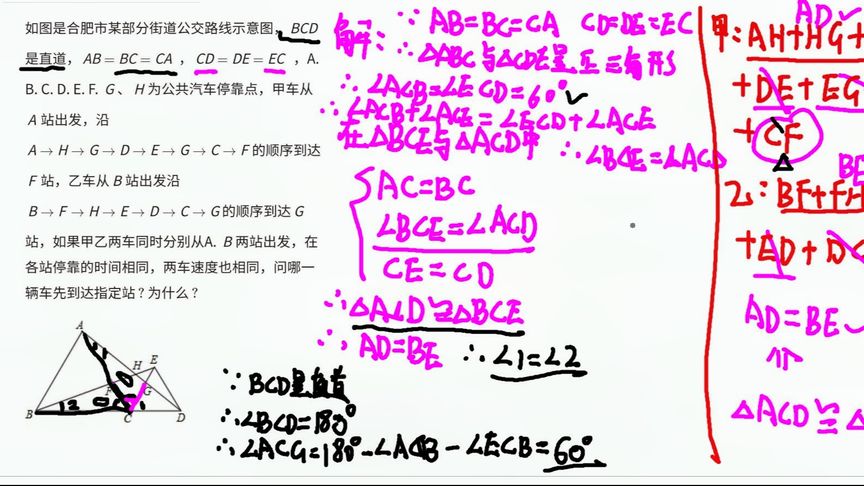 如图是合肥市某部分街道公交路线示意图,BCD
是直道,AB=BC=CA,CD=DE=EC,A.
B. C. D. E. F. G、H为公共汽车停靠点,甲车从
A站出发,沿
A→H→G→D→E→G→C→F的顺序到达
F站,乙车从B站出发沿
B→F→H→E→D→C→G的顺序到达G
站,如果甲乙两车同时分别从A. B两站出发,在
各站停靠的时间相同,两车速度也相同,问哪一
辆车先到达指定站?为什么?
A
H
E
F
G
B
12
C
D
解:∵AB=BC=CA CD=DE=EC
∴△ABC与△CDE是正三角形
∴∠ACB=∠ECD=60°
∴∠ACB+∠ACE=∠ECD+∠ACE
∴∠BCE=∠ACD
在△BCE与△ACD中
AC=BC
∠BCE=∠ACD
CE=CD
∴△ACD≌△BCE
∴AD=BE ∴∠1=∠2
∵BCD是直道
∴∠BCD=180°
∴∠ACG=180°-∠ACB-∠ECB=60°
AD
甲:AH+HG+
+DE+EG
+CF
△
BE
乙:BF+FH
+ED+DC
AD=BE
△ACD≌△